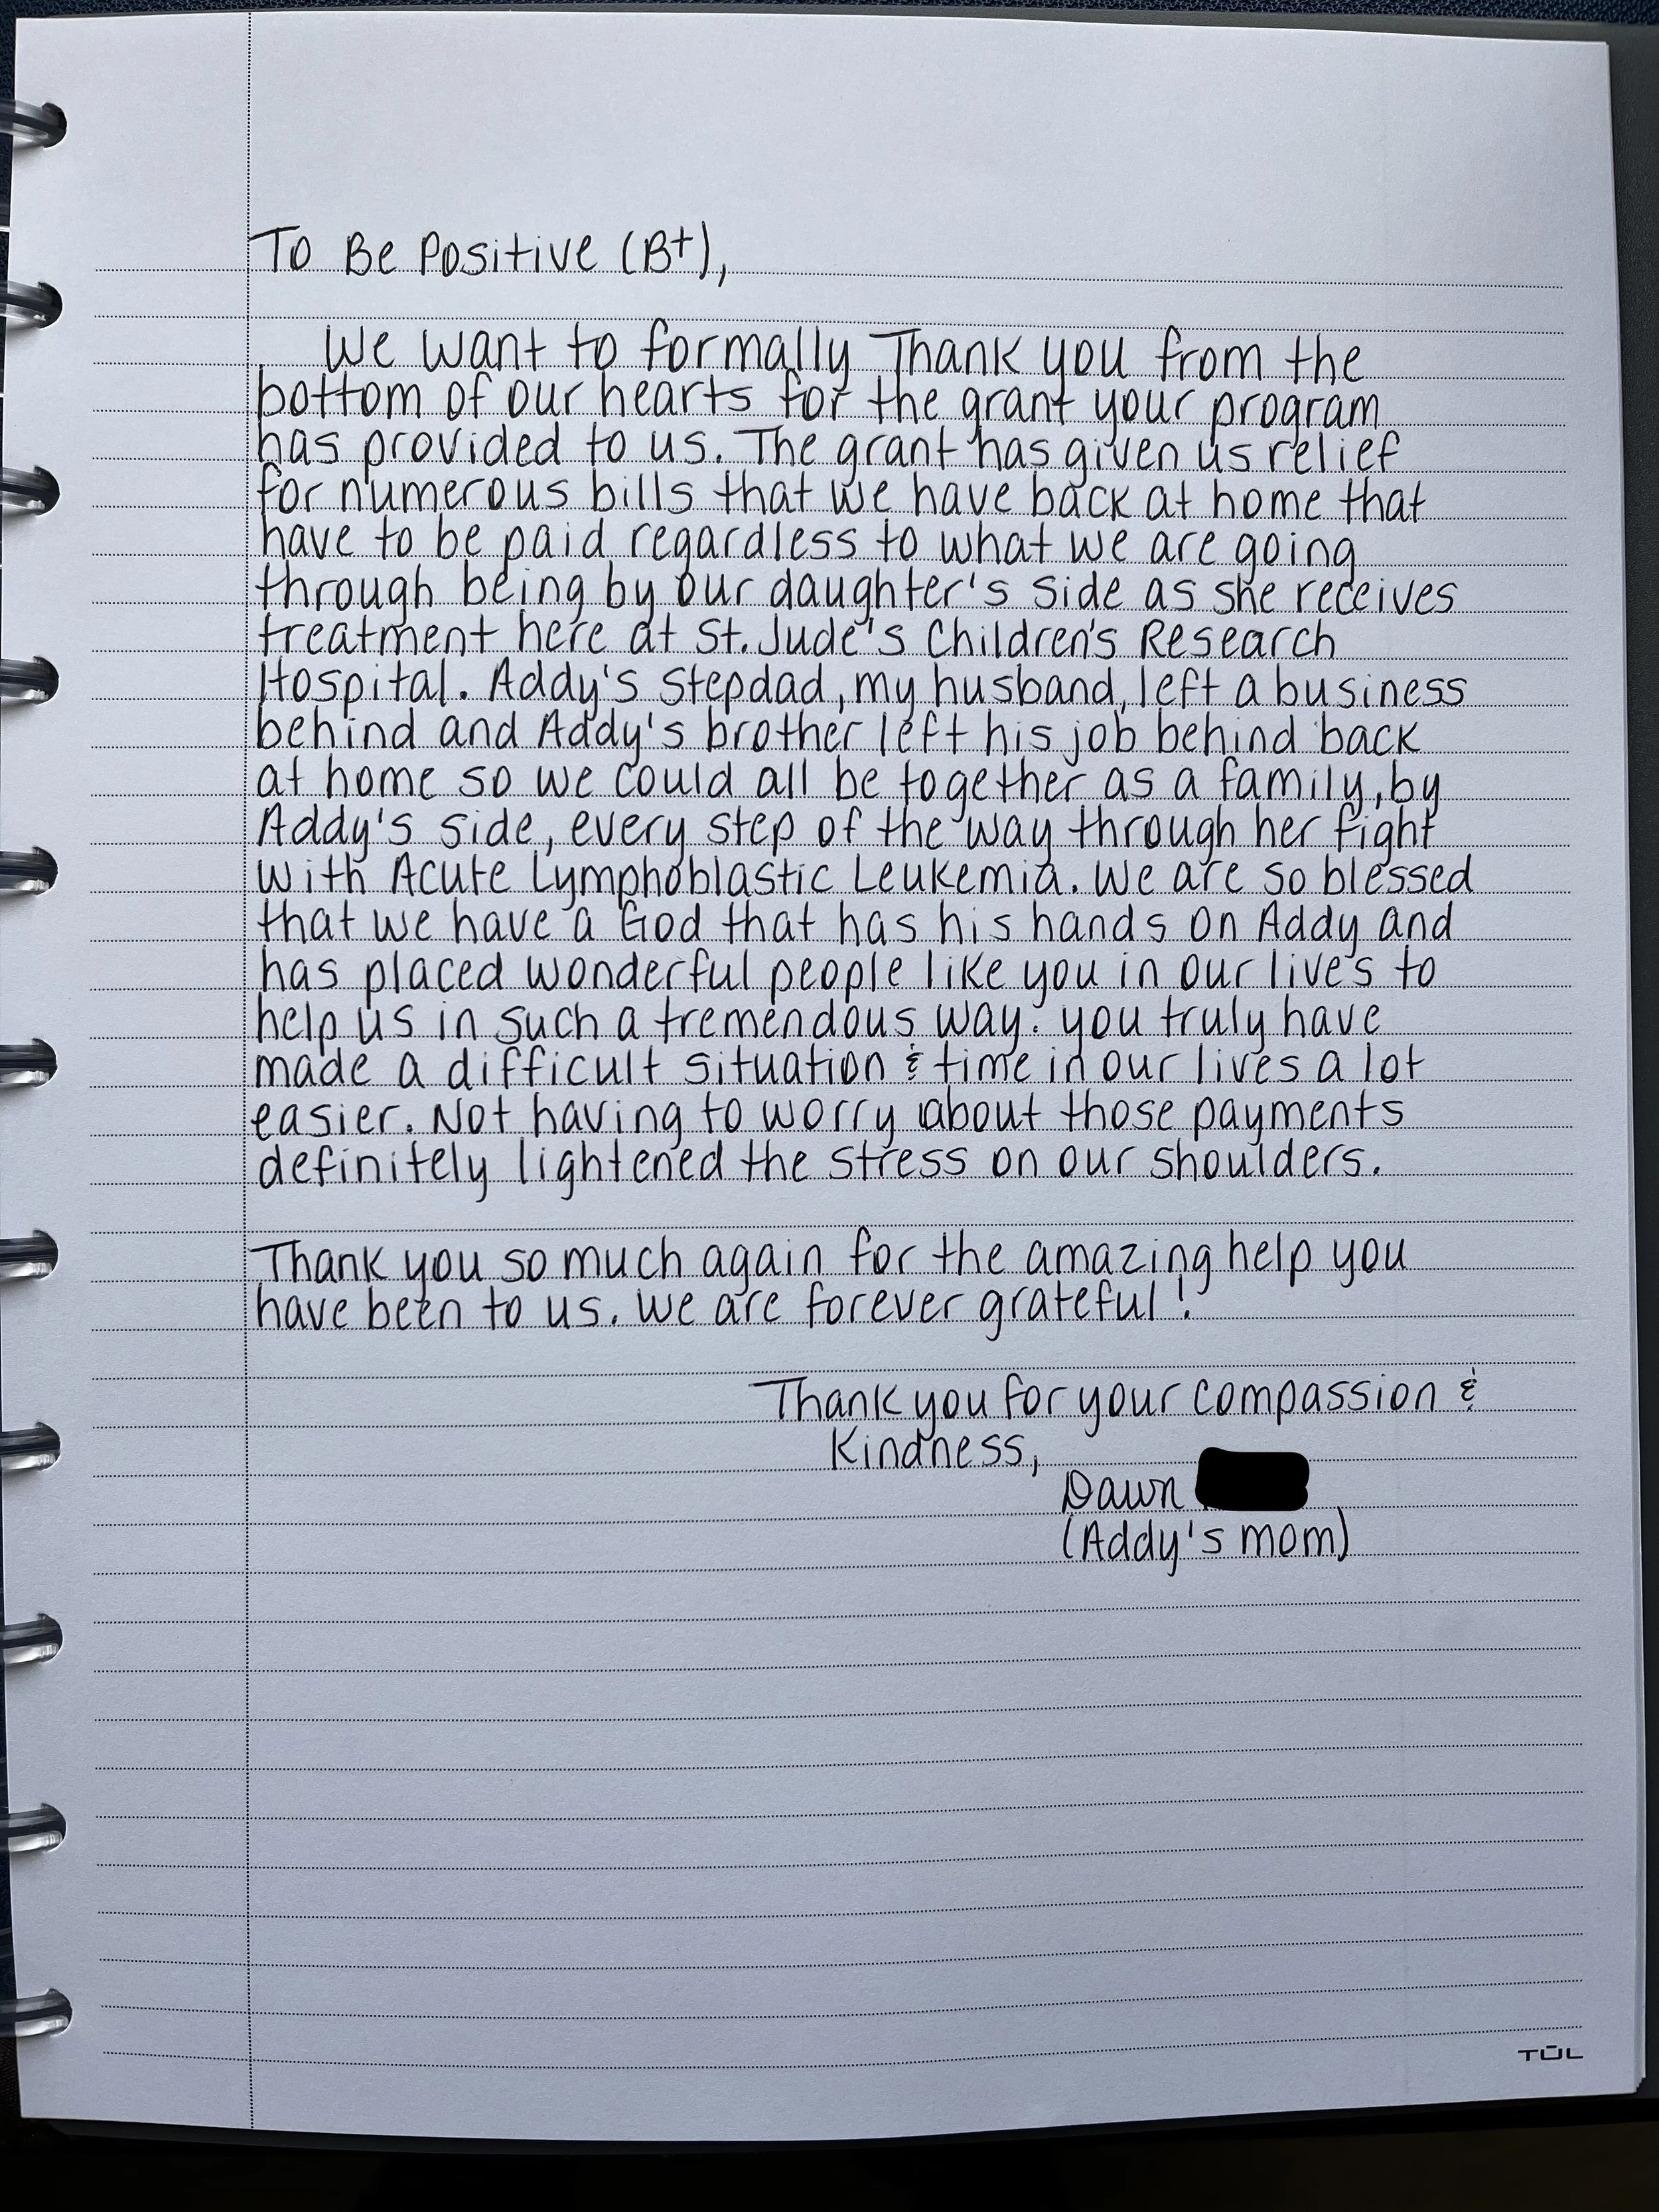 To Be Positive (B+),
We want to formally Thank you from the
bottom of our hearts for the grant your program
has provided to us. The grant has given us relief
for numerous bills that we have back at home that
have to be paid regardless to what we are going
through being by our daughter's side as she receives
treatment here at St. Jude's Children's Research
Hospital. Addy's Stepdad, my husband, left a business
behind and Addy's brother left his job behind back
at home so we could all be together as a family, by
Addy's side, every step of the way through her fight
with Acute Lymphoblastic Leukemia. We are so blessed
that we have a God that has his hands on Addy and
has placed wonderful people like you in our lives to
help us in such a tremendous way. you truly have
made a difficult situation & time in our lives a lot
easier. Not having to worry about those payments
definitely lightened the stress on our shoulders.
Thank you so much again for the amazing help you
have been to us. We are forever grateful!
Thank you for your compassion &
Kindness,
Dawn
(Addy's mom)
TUL